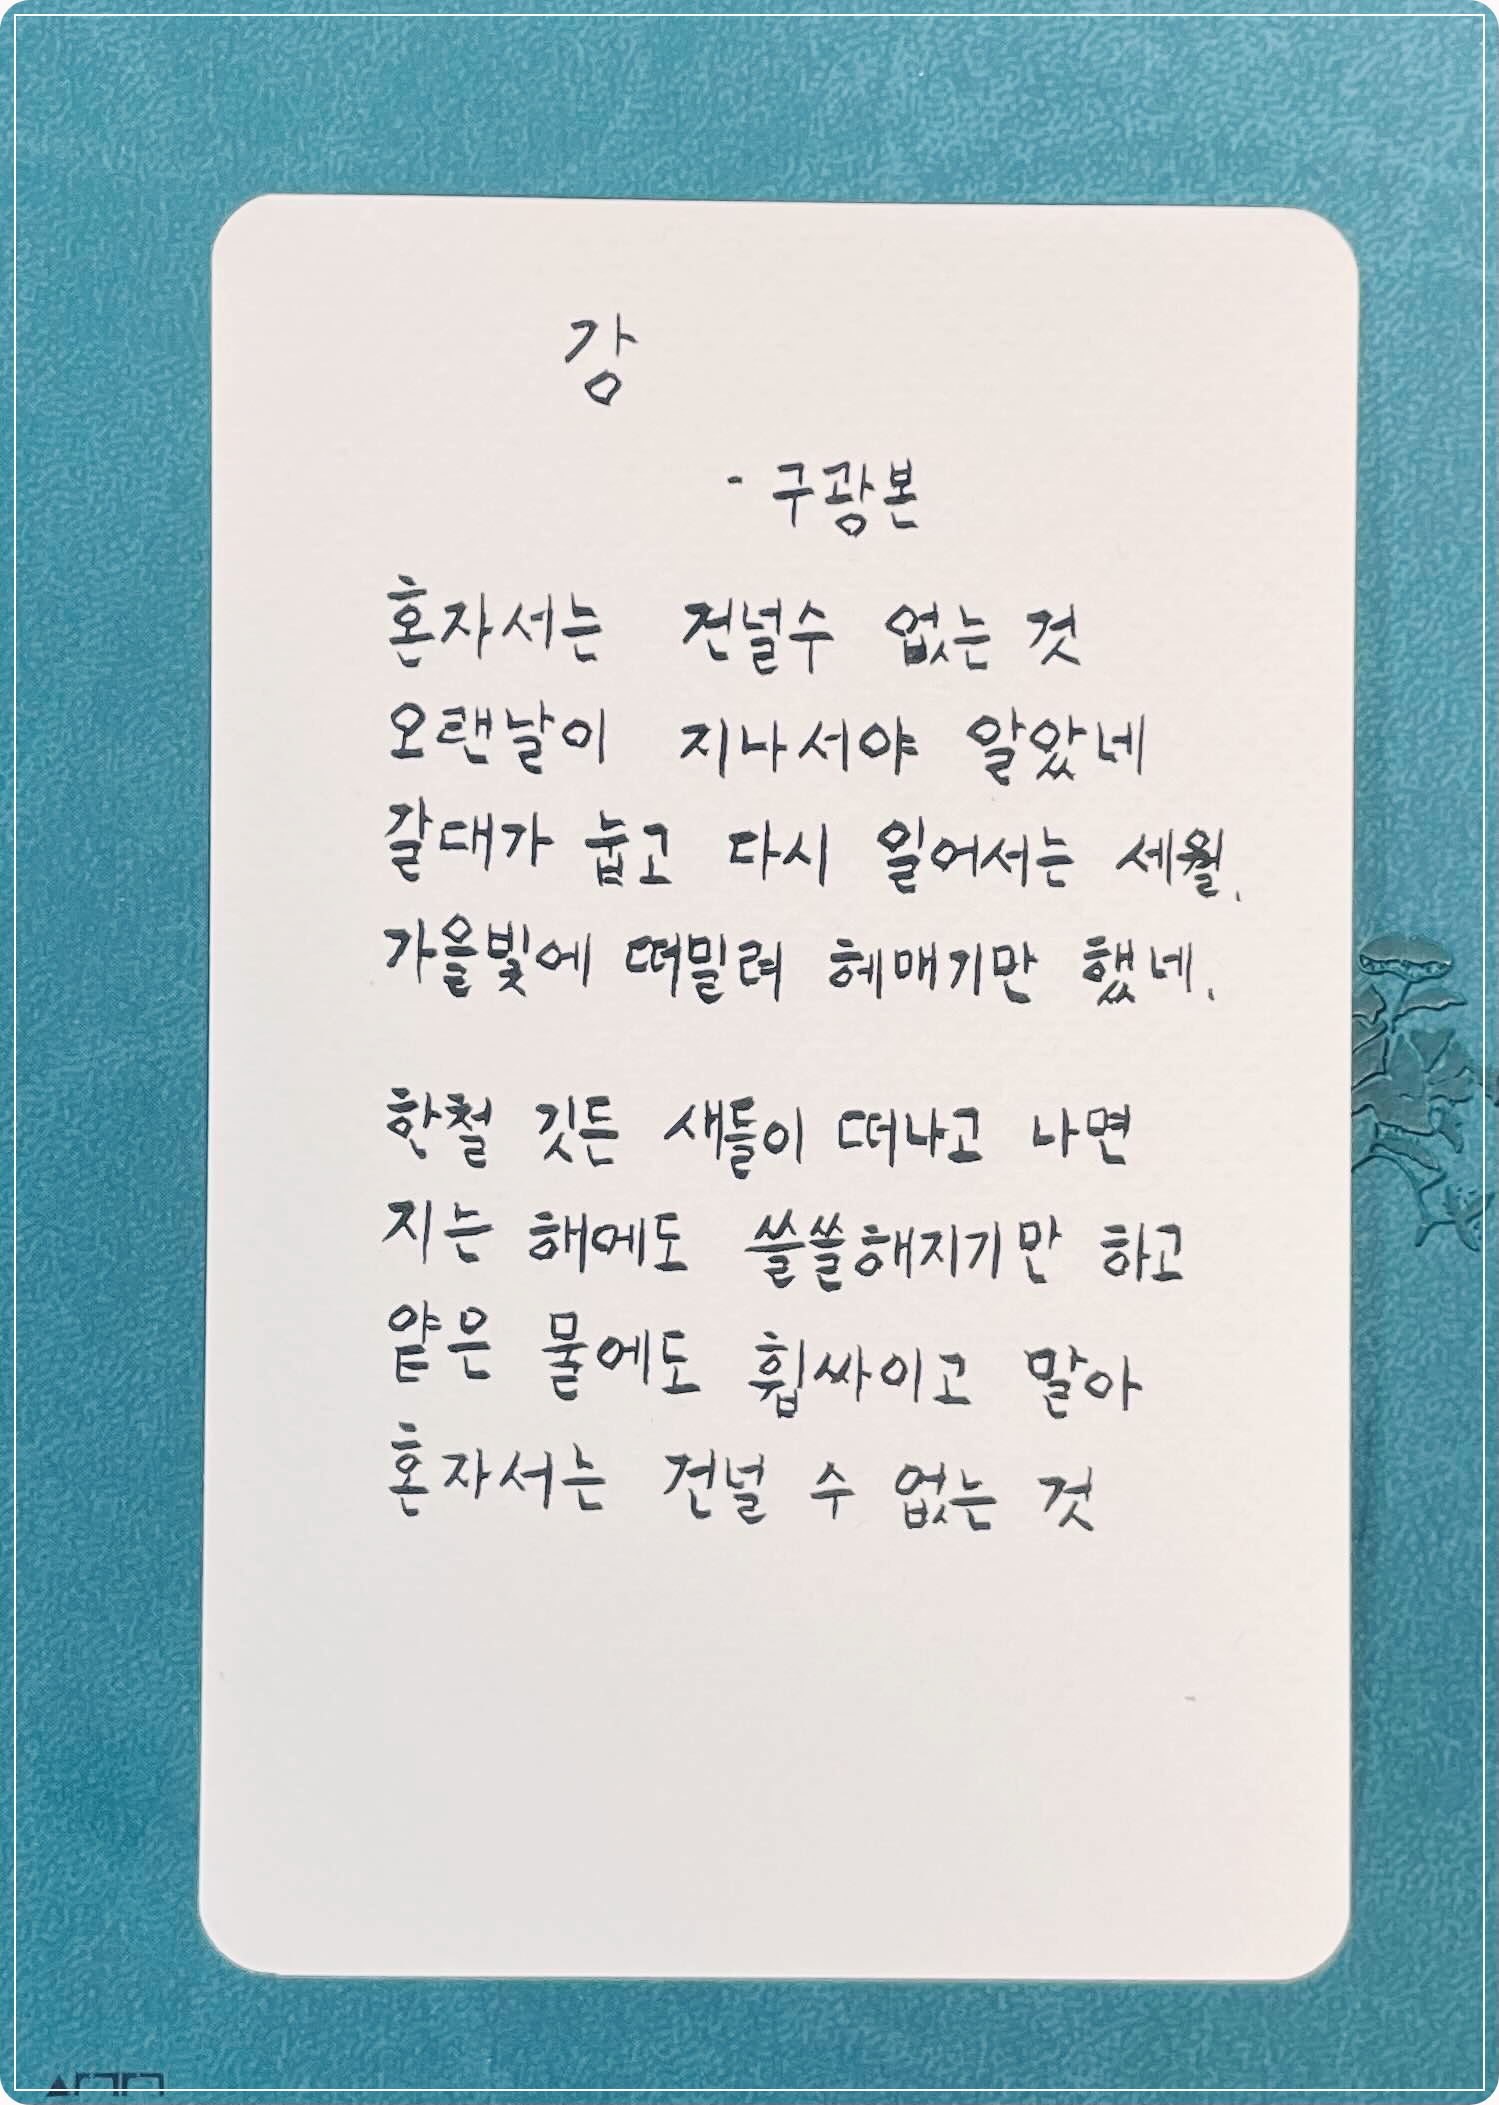 강
- 구광본
혼자서는 건널수 없는 것
오랜날이 지나서야 알았네
갈대가 눕고 다시 일어서는 세월.
가을빛에 떠밀려 헤매기만 했네.
한철 깃든 새들이 떠나고 나면
지는 해에도 쓸쓸해지기만 하고
얕은 물에도 휩싸이고 말아
혼자서는 건널 수 없는 것